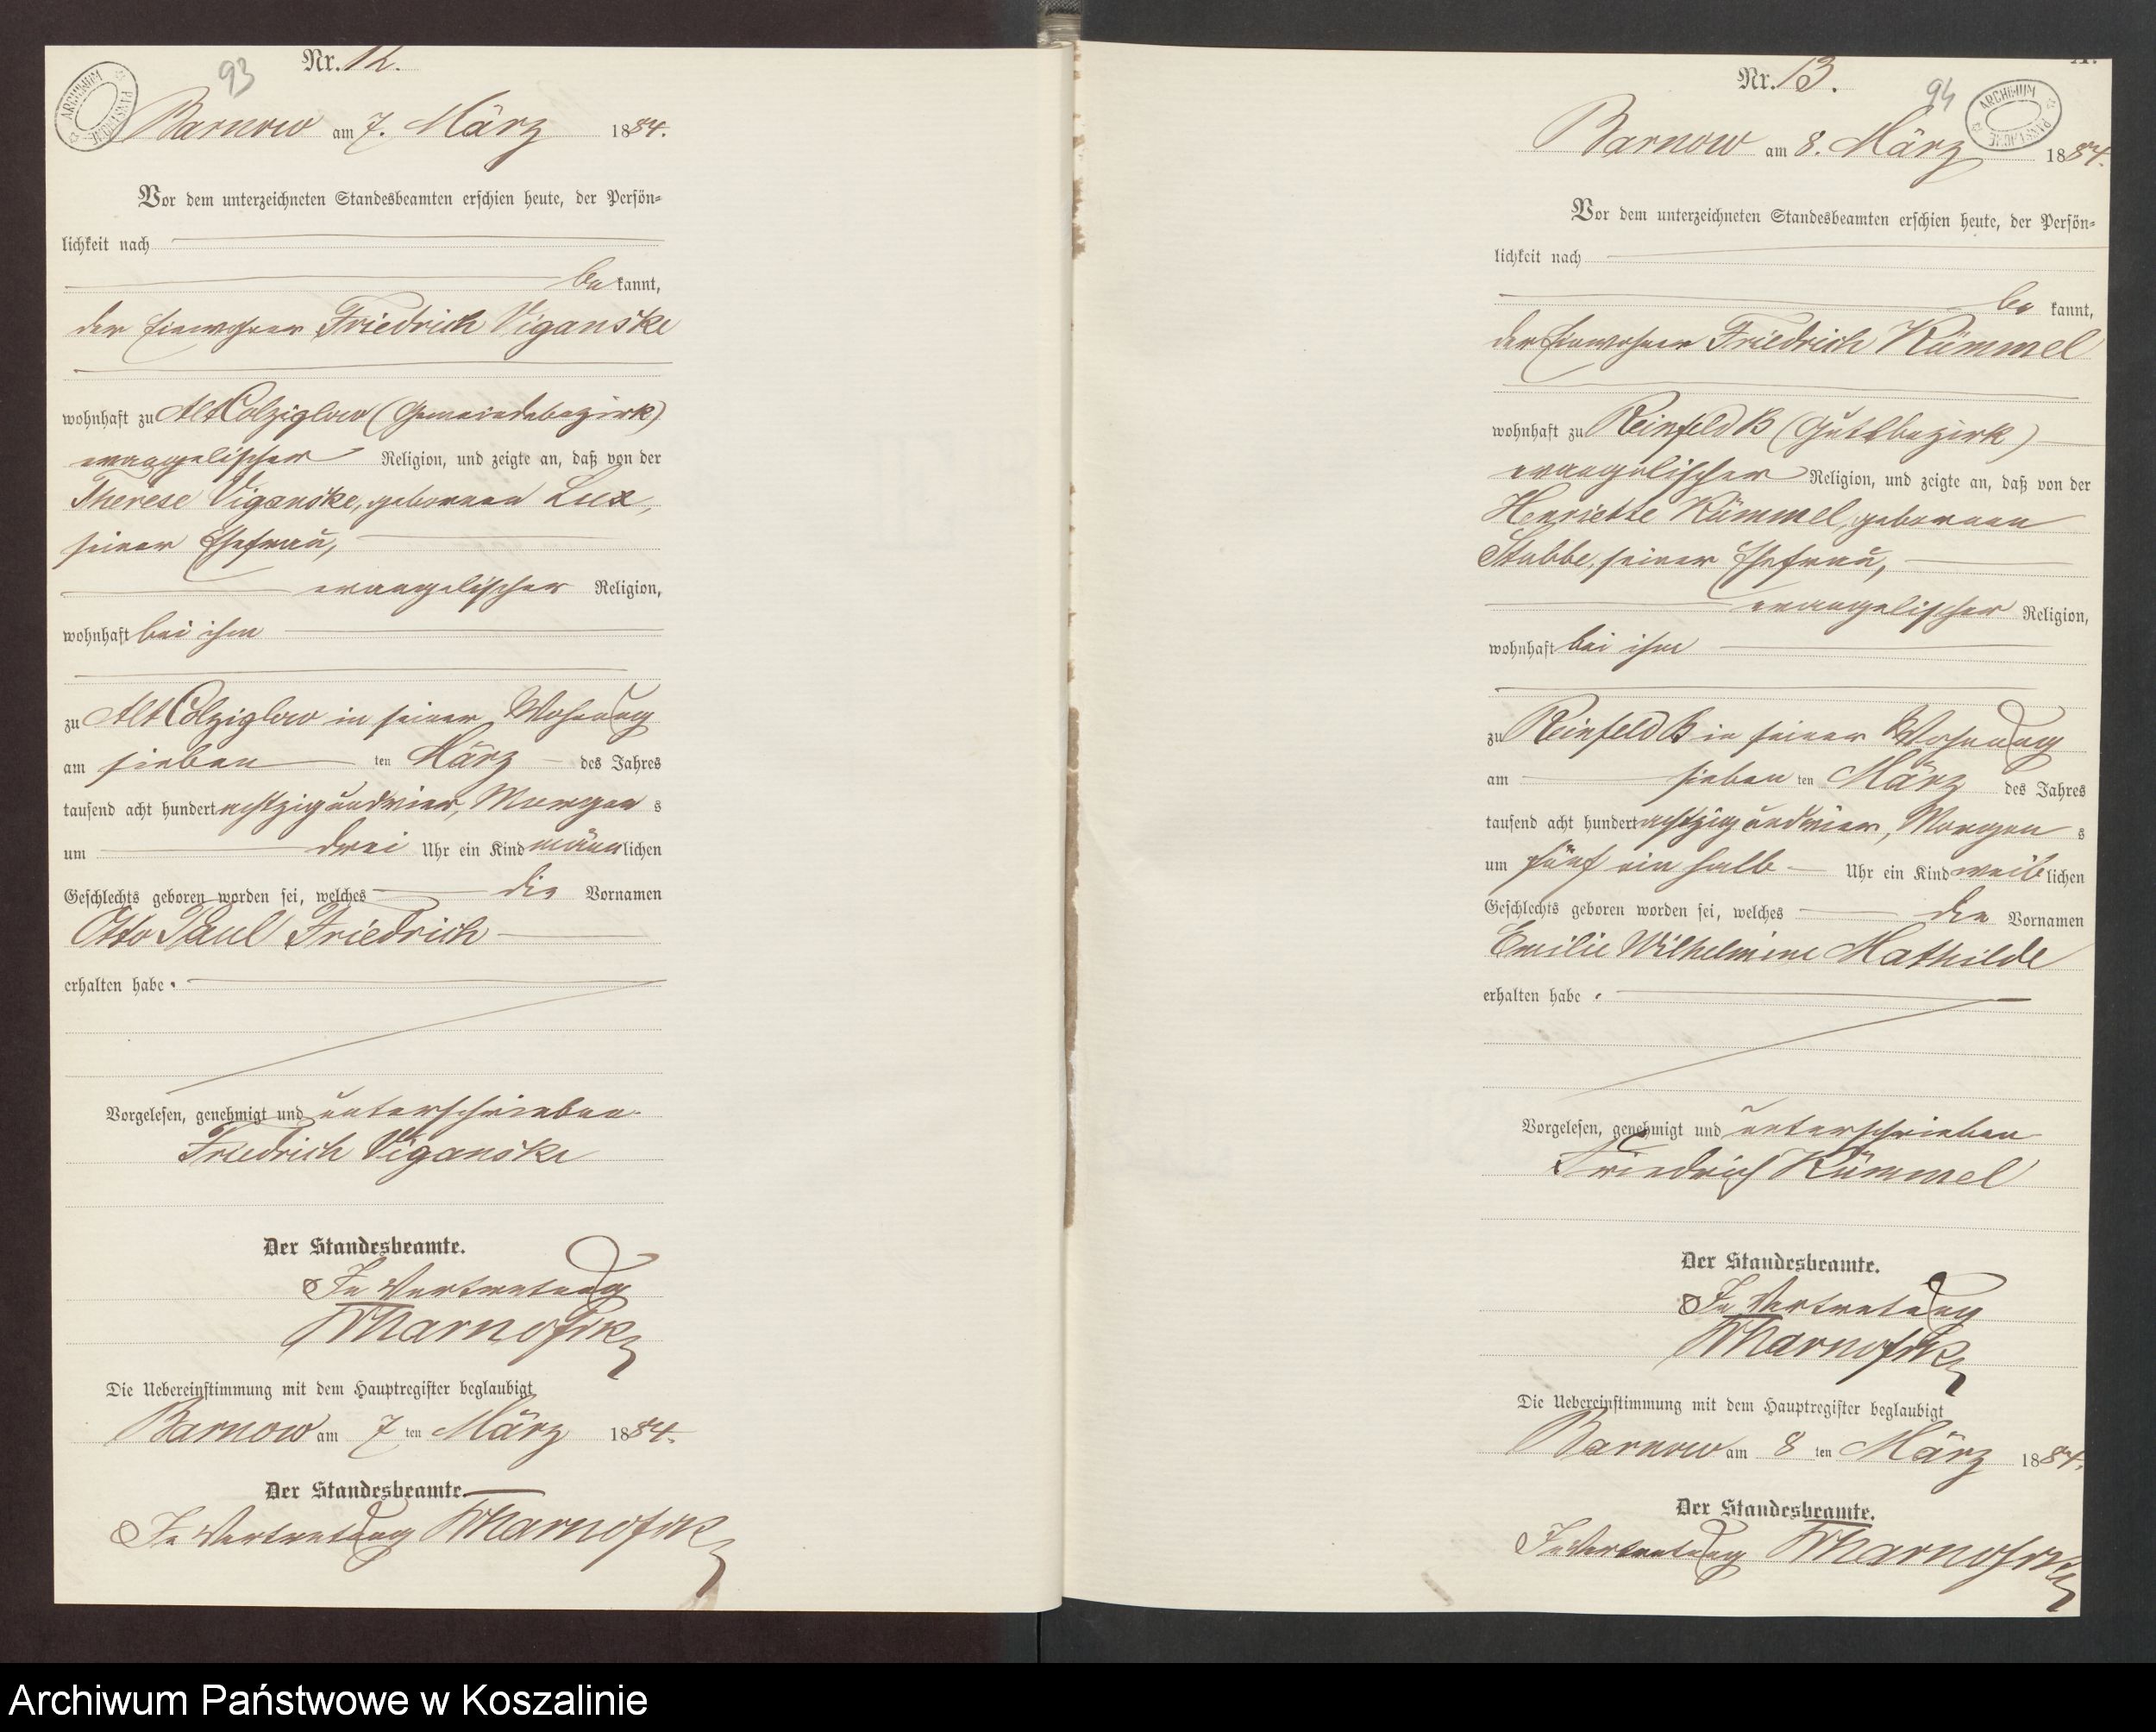 93
Nr. 12.
ARCHIWUM PAŃSTWOWE
Barnow am 7. März 1884.
Vor dem unterzeichneten Standesbeamten erschien heute, der Persön=
lichkeit nach
be kannt,
der Einwohner Friedrich Viganske
wohnhaft zu Alt Colziglow (Gemeindebezirk)
evangelischer Religion, und zeigte an, daß von der
Therese Viganske, geborenen Lux,
seiner Ehefrau,
evangelischer Religion,
wohnhaft bei ihm
zu Alt Colziglow in seiner Wohnung
am sieben ten März des Jahres
tausend acht hundert achtzig und vier, Morgen s
um drei Uhr ein Kind männlichen
Geschlechts geboren worden sei, welches die Vornamen
Otto Paul Friedrich
erhalten habe.
Vorgelesen, genehmigt und unterschrieben
Friedrich Viganske
Der Standesbeamte.
In Vertretung
Die Uebereinstimmung mit dem Hauptregister beglaubigt
Barnow am 7 ten März 1884.
Der Standesbeamte.
In Vertretung
Nr. 13.
94
ARCHIWUM PAŃSTWOWE
Barnow am 8. März 1884.
Vor dem unterzeichneten Standesbeamten erschien heute, der Persön=
lichkeit nach
be kannt,
der Einwohner Friedrich Kümmel
wohnhaft zu Reinfeld B (Gutsbezirk)
evangelischer Religion, und zeigte an, daß von der
Henriette Kümmel, geborenen
Stubbe, seiner Ehefrau,
evangelischer Religion,
wohnhaft bei ihm
zu Reinfeld B in seiner Wohnung
am sieben ten März des Jahres
tausend acht hundert achtzig und vier, Morgen s
um fünf ein halb Uhr ein Kind weiblichen
Geschlechts geboren worden sei, welches die Vornamen
Emilie Wilhelmine Mathilde
erhalten habe.
Vorgelesen, genehmigt und unterschrieben
Friedrich Kümmel
Der Standesbeamte.
In Vertretung
Die Uebereinstimmung mit dem Hauptregister beglaubigt
Barnow am 8 ten März 1884.
Der Standesbeamte.
In Vertretung
Archiwum Państwowe w Koszalinie